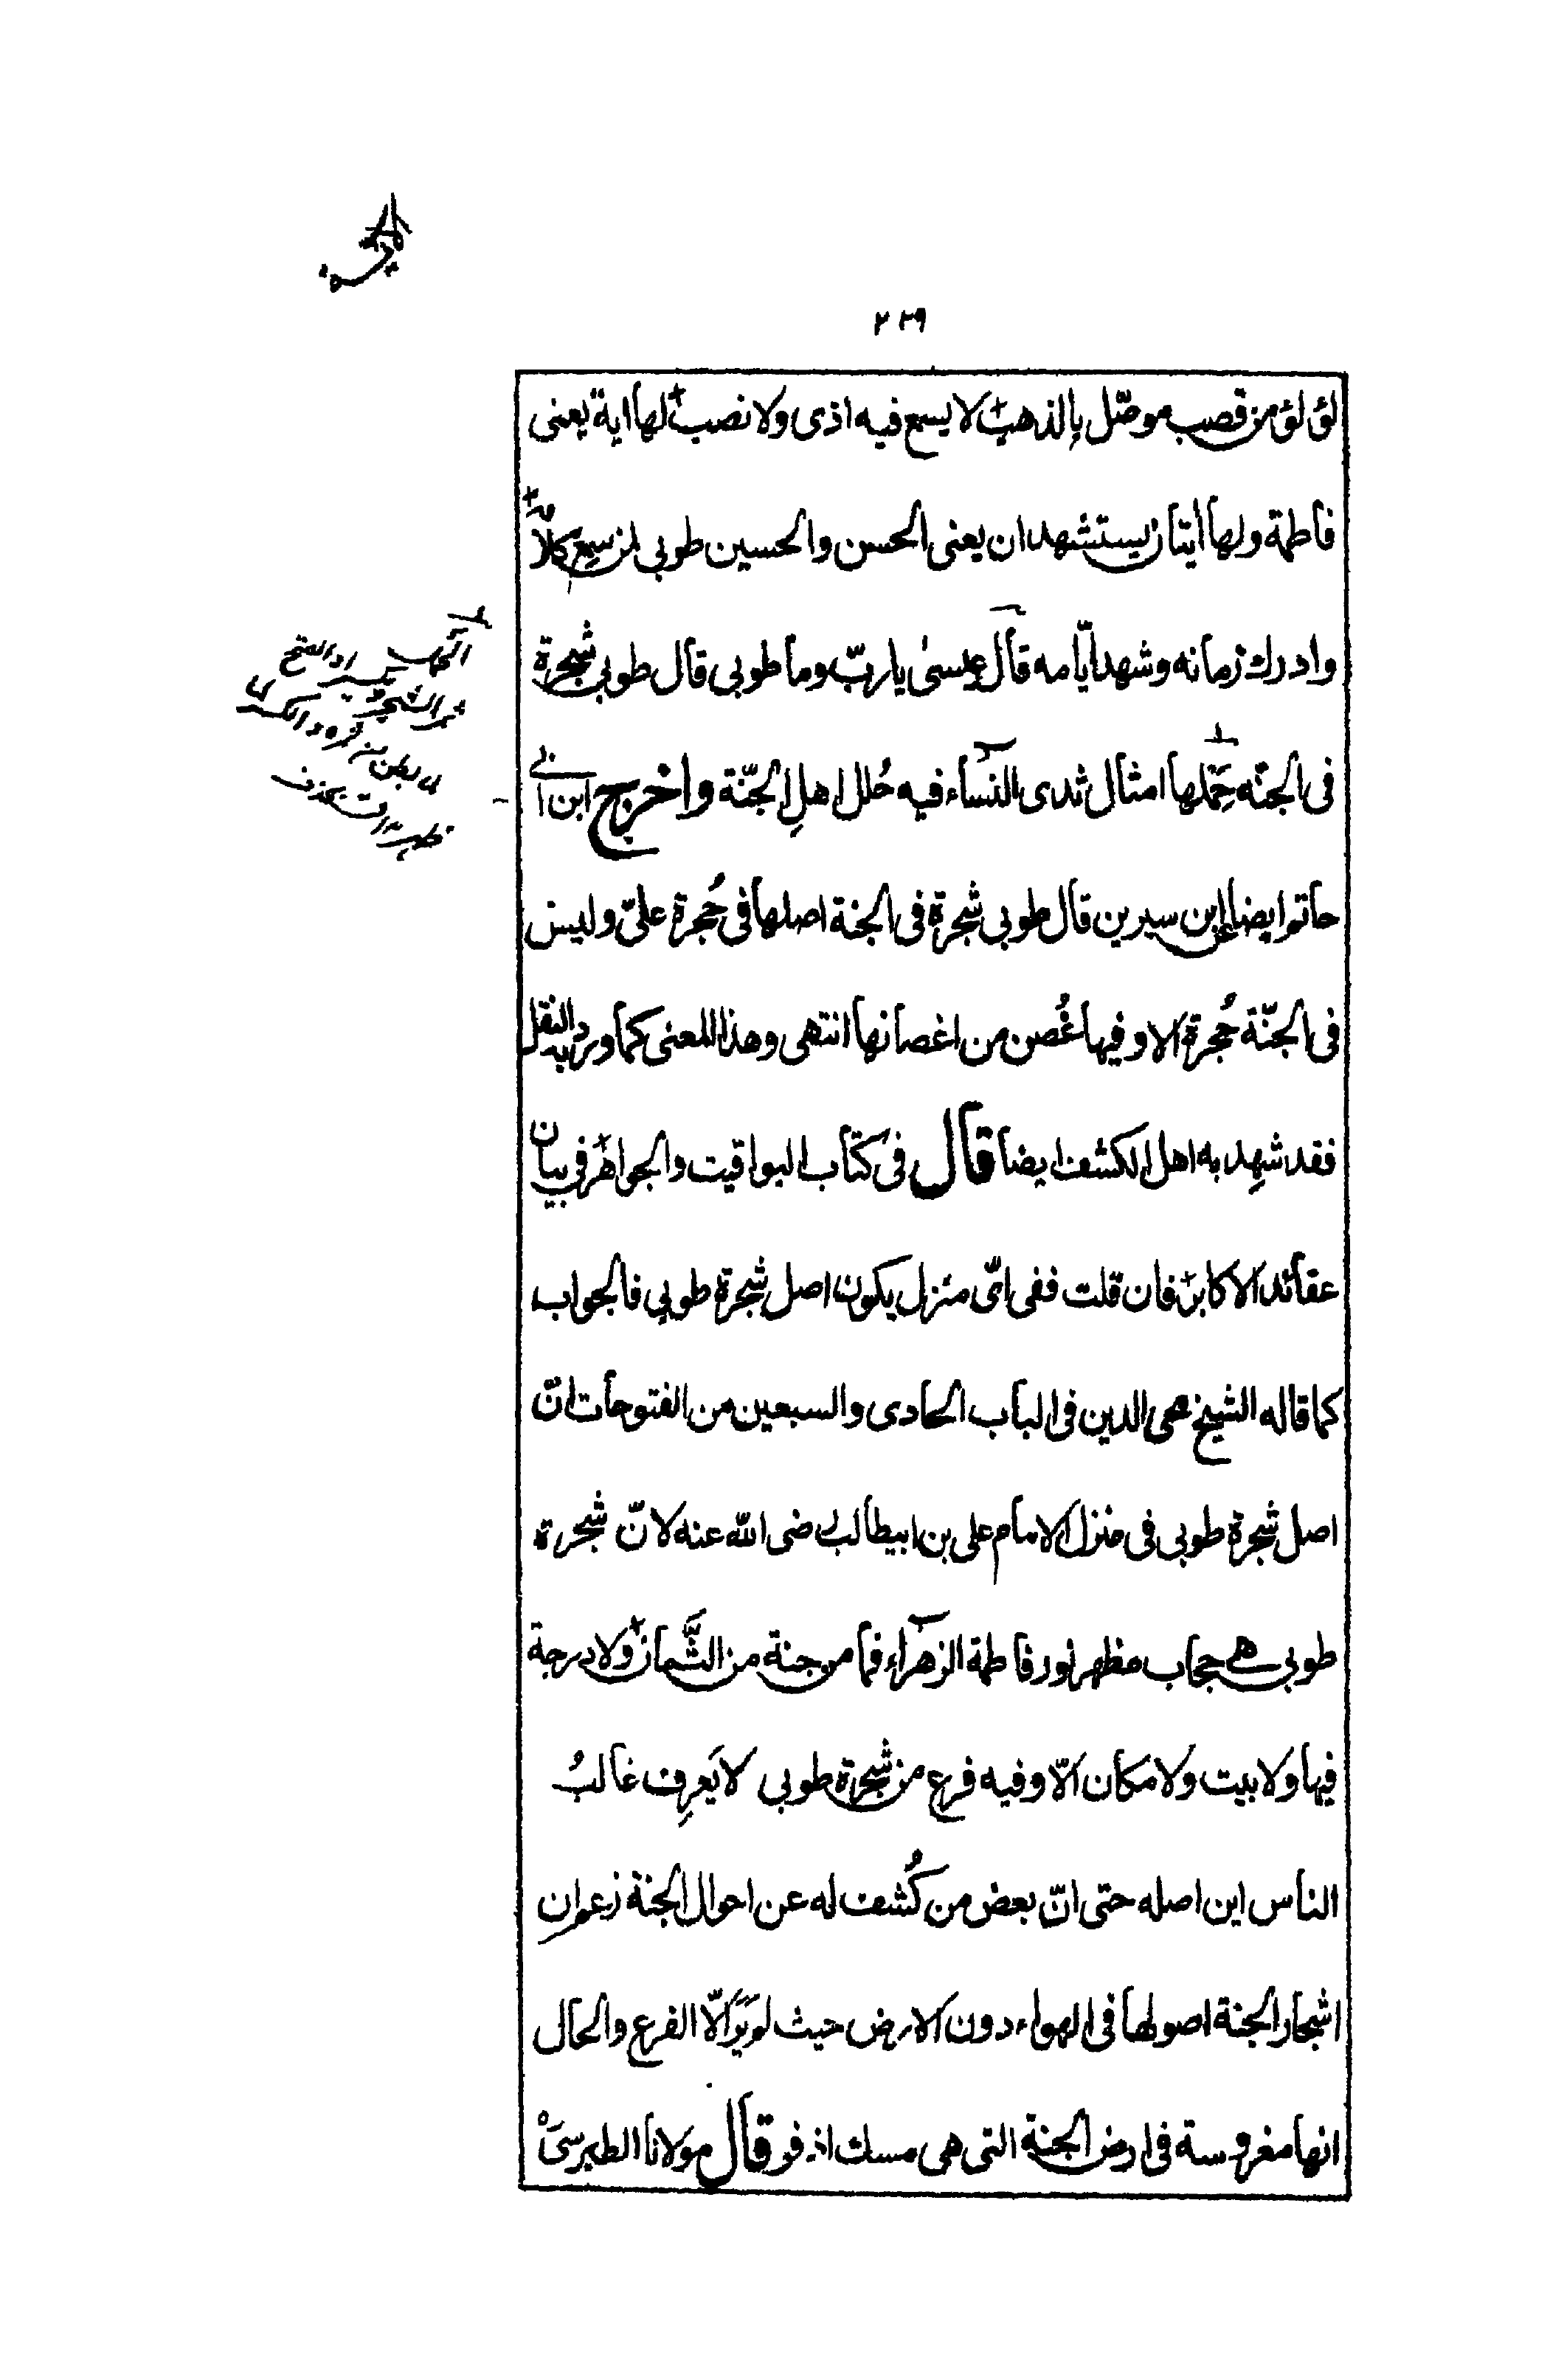 ٢٣٩
لؤلؤ من قصب موصّل بالذهب لا يسمع فيه اذى ولا نصب لها ابنة يعنى
فاطمة ولها ابنان يستشهدان يعنى الحسن والحسين طوبى لمن سمع كلامه
وادرك زمانه وشهد ايّامه قال عيسىٰ يا ربّ وما طوبى قال طوبى شجرة
فى الجنّة حَملها امثال ثدى النساء فيه حُلل اهلِ الجنّة واخرج ابن ابى
حاتم ايضا عن ابن سيرين قال طوبى شجرة فى الجنة اصلها فى حُجرة علىّ وليس
فى الجنّة حُجرة الا وفيها غُصن من اغصانها انتهى وهذا المعنى كما ورد به النقل
فقد شهِد به اهل الكشف ايضا قال فى كتاب اليواقيت والجواهر فى بيان
عقائد الاكابر فان قلت ففى اىّ منزل يكون اصل شجرة طوبى فالجواب
كما قاله الشيخ محى الدين فى الباب الحادى والسبعين من الفتوحات انّ
اصل شجرة طوبى فى منزل الامام على بن ابيطالب رضى الله عنه لانّ شجرة
طوبى هى حجاب مظهر نور فاطمة الزهراء فما من جنة من الثّمان ولا درجة
فيها ولا بيت ولا مكان الّا وفيه فرع من شجرة طوبى لا يَعرِف غالبُ
الناس اين اصله حتى انّ بعض من كُشف له عن احوال الجنة زعم ان
اشجار الجنة اصولها فى الهواء دون الارض حيث لم يَرَ الّا الفرع والحال
انها مغروسة فى ارض الجنة التى هى مسك اذفر قال مولانا الطبرسىَ